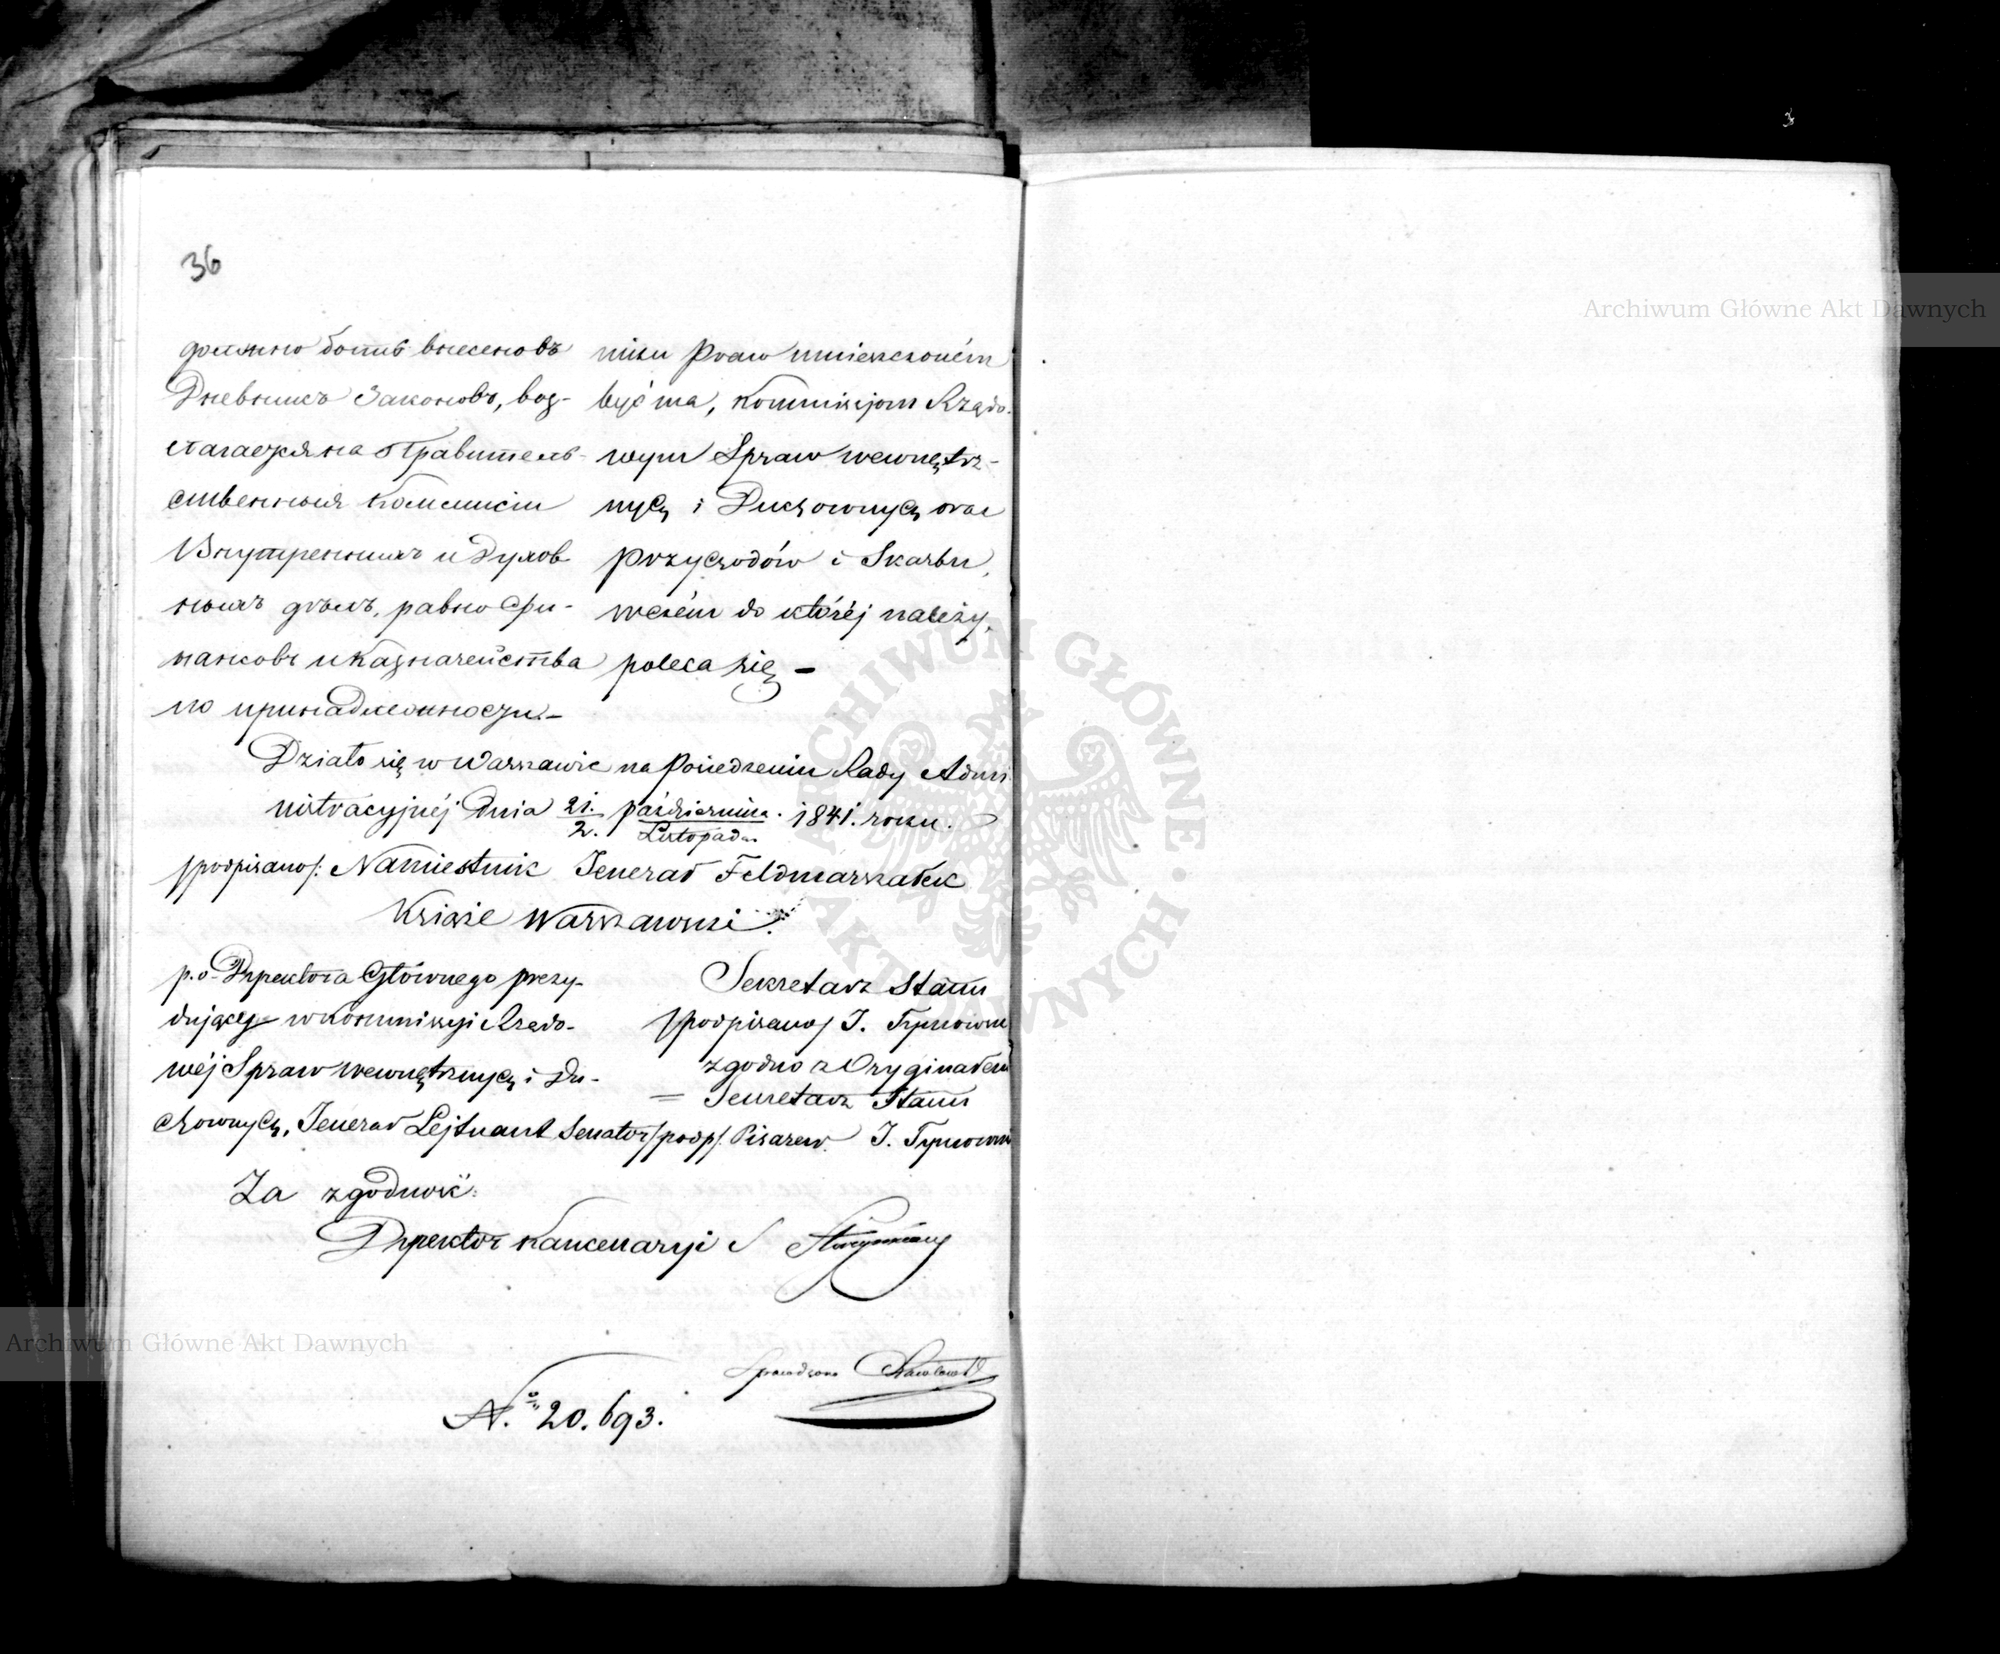 36
должно быть внесено въ
Дневникъ Законовъ, воз-
лагается на Правитель-
ственныя Коммисіи
Внутреннихъ и Духов-
ныхъ дѣлъ, равно Фи-
нансовъ и Казначейства
по принадлежности.–
niku Praw umieszczoném
być ma, Kommissjom Rządo-
wym Spraw wewnętrz-
nych i Duchownych oraz
Przychodów i Skarbu,
wczém do któréj należy,
poleca się –
Działo się w Warszawie na Posiedzeniu Rady Admi
nistracyjnéj Dnia 21./2. Października/Listopada 1841. roku.
/podpisano/: Namiestnik Jenerał Feldmarszałek
Książe Warszawski.
p.o. Dyrektora Głównego prezy-
dującego w Kommissyi Rządo-
wéj Spraw wewnętrznych i Du-
chownych, Jenerał Lejtnant Senator /podp/. Pisarew.
Sekretarz Stanu
/podpisano/ J. Tymowski
zgodno z Oryginałem
= Sekretarz Stanu
J. Tymowski
Za zgodność:
Dyrektor Kancellaryi
Sprawdzono
N.º 20.693.
Archiwum Główne Akt Dawnych
Archiwum Główne Akt Dawnych
ARCHIWUM GŁÓWNE AKT DAWNYCH